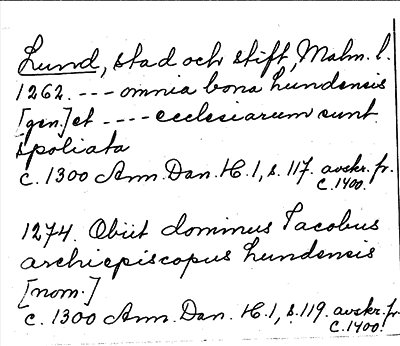 Lund, stad och stift, Malm. l.
1262. --- omnia bona Lundensis
[gen.] et ---- ecclesiarum sunt
spoliata
c. 1300 Ann. Dan. H. 1, s. 117. avskr. fr.
c. 1400.
1274. Obiit dominus Jacobus
archiepiscopus Lundensis
[nom.]
c. 1300 Ann. Dan. H. 1, s. 119. avskr. fr.
c. 1400.